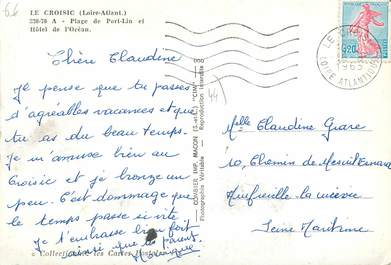 LE CROISIC (Loire-Atlant.)
228/78 A - Plage de Port-Lin et
Hôtel de l'Océan.
Chère Claudine
Je pense que tu passes
d'agréables vacances et que
tu as du beau temps.
Je m'amuse bien au
Croisic et je bronze un
peu. C'est dommage que
le temps passe si vite
Je t'embrasse bien fort
ainsi que tes parents.
Monique
" Collectionnez les Cartes Postales "
COMBIER IMP. MACON (S.-et-L.) "CIM"
Photographie Véritable - Reproduction Interdite
44
66
LE CROISIC
1965
LOIRE ATLANTIQUE
0,20
Melle Claudine Grare
10, Chemin de Mesnil
Neufville la
Seine Maritime